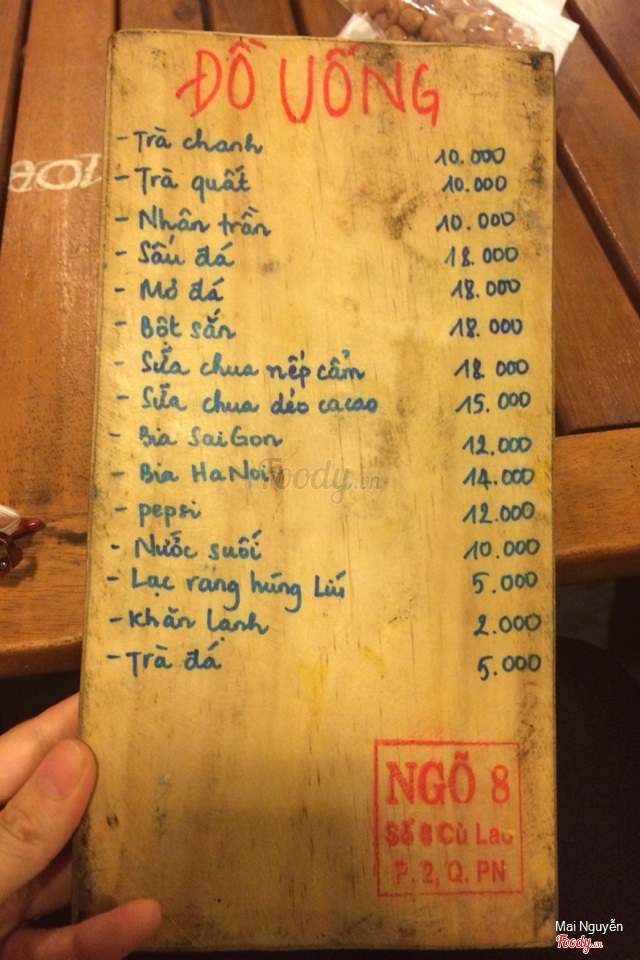 ĐỒ UỐNG
- Trà chanh 10.000
- Trà quất 10.000
- Nhân trần 10.000
- Sấu đá 18.000
- Mơ đá 18.000
- Bột sắn 18.000
- Sữa chua nếp cẩm 18.000
- Sữa chua dẻo cacao 15.000
- Bia SaiGon 12.000
- Bia HaNoi 14.000
- pepsi 12.000
- Nước suối 10.000
- Lạc rang húng lìu 5.000
- Khăn lạnh 2.000
- Trà đá 5.000
NGÕ 8
Số 8 Cù Lao
P. 2, Q. PN
Foody.vn
Mai Nguyễn
Foody.vn